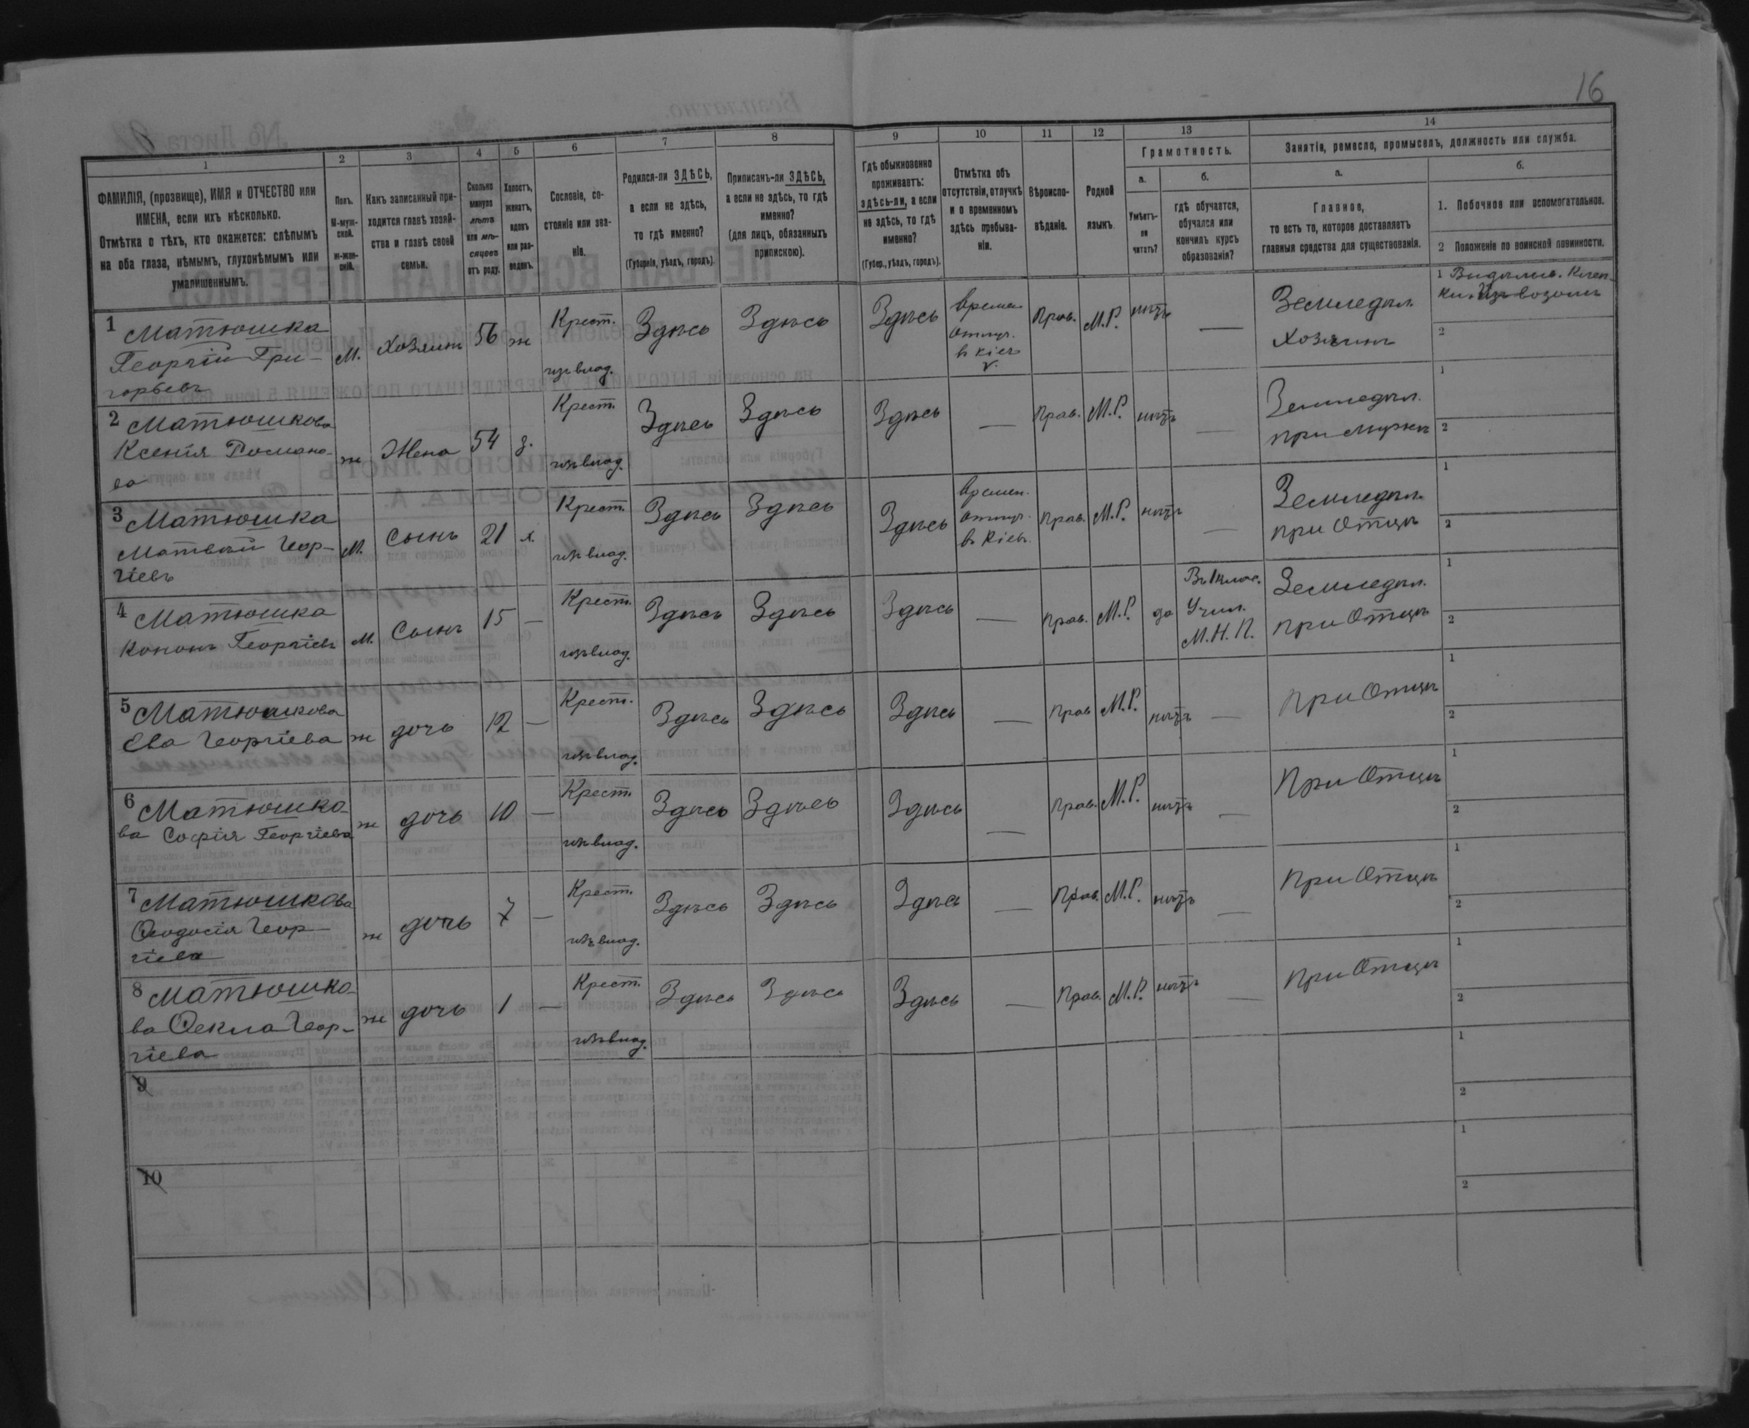 16
1
2
3
4
5
6
7
8
9
10
11
12
13
14
ФАМИЛІЯ, (прозвище), ИМЯ и ОТЧЕСТВО или
ИМЕНА, если ихъ нѣсколько.
Отмѣтка о тѣхъ, кто окажется: слѣпымъ
на оба глаза, нѣмымъ, глухонѣмымъ или
умалишеннымъ.
Полъ.
М-муж-
ской.
ж-жен-
скій.
Какъ записанный при-
ходится главѣ хозяй-
ства и главѣ своей
семьи.
Сколько
минуло
лѣтъ
или мѣ-
сяцевъ
отъ роду.
Холостъ,
женатъ,
вдовъ
или раз-
веденъ.
Сословіе, со-
стояніе или зва-
ніе.
Родился-ли ЗДѢСЬ,
а если не здѣсь,
то гдѣ именно?
(Губернія, уѣздъ, городъ).
Приписанъ-ли ЗДѢСЬ,
а если не здѣсь, то гдѣ
именно?
(для лицъ, обязанныхъ
припискою).
Гдѣ обыкновенно
проживаетъ:
здѣсь-ли, а если
не здѣсь, то гдѣ
именно?
(Губер., уѣздъ, городъ).
Отмѣтка объ
отсутствіи, отлучкѣ
и о временномъ
здѣсь пребыва-
ніи.
Вѣроиспо-
вѣданіе.
Родной
языкъ.
Грамотность.
а.
Умѣетъ-
ли
читать?
б.
гдѣ обучается,
обучался или
кончилъ курсъ
образованія?
Занятіе, ремесло, промыселъ, должность или служба.
а.
Главное,
то есть то, которое доставляетъ
главныя средства для существованія.
б.
1. Побочное или вспомогательное.
2 Положеніе по воинской повинности.
1 Матюшка
Георгій Гри-
горьевъ
М.
Хозяинъ
56
ж
Крест.
изъ влад.
Здѣсь
Здѣсь
Здѣсь
Времен.
отлуч.
в Кіев
Прав.
М.Р.
нѣтъ
—
Земледѣл.
Хозяинъ
1
2
2 Матюшкова
Ксенія Романо-
ва
ж
Жена
54
з.
Крест.
изъ влад.
Здѣсь
Здѣсь
Здѣсь
—
Прав.
М.Р.
нѣтъ
—
Земледѣл.
при мужѣ
1
2
3 Матюшка
Матвѣй Геор-
гіевъ
М.
Сынъ
21
х.
Крест.
изъ влад.
Здѣсь
Здѣсь
Здѣсь
Времен.
отлуч.
въ Кіевъ.
Прав.
М.Р.
нѣтъ
—
Земледѣл.
при Отцѣ
1
2
4 Матюшка
Кононъ Георгіевъ
М.
Сынъ
15
—
Крест.
изъ влад.
Здѣсь
Здѣсь
Здѣсь
—
Прав.
М.Р.
да
Въ 1 клас.
Учил.
М.Н.П.
Земледѣл.
при Отцѣ
1
2
5 Матюшкова
Ева Георгіева
ж
дочь
12
—
Крест.
изъ влад.
Здѣсь
Здѣсь
Здѣсь
—
Прав
М.Р.
нѣтъ
—
При Отцѣ
1
2
6 Матюшко-
ва Софія Георгіева
ж
дочь
10
—
Крест.
изъ влад.
Здѣсь
Здѣсь
Здѣсь
—
Прав.
М.Р.
нѣтъ
—
При Отцѣ
1
2
7 Матюшкова
Ѳеодосія Геор-
гіева
ж
дочь
7
—
Крест.
изъ влад.
Здѣсь
Здѣсь
Здѣсь
—
Прав.
М.Р.
нѣтъ
—
При Отцѣ
1
2
8 Матюшко-
ва Ѳекла Геор-
гіева
ж
дочь
1
—
Крест.
изъ влад.
Здѣсь
Здѣсь
Здѣсь
—
Прав.
М.Р.
нѣтъ
—
При Отцѣ
1
2
9
1
2
10
1
2